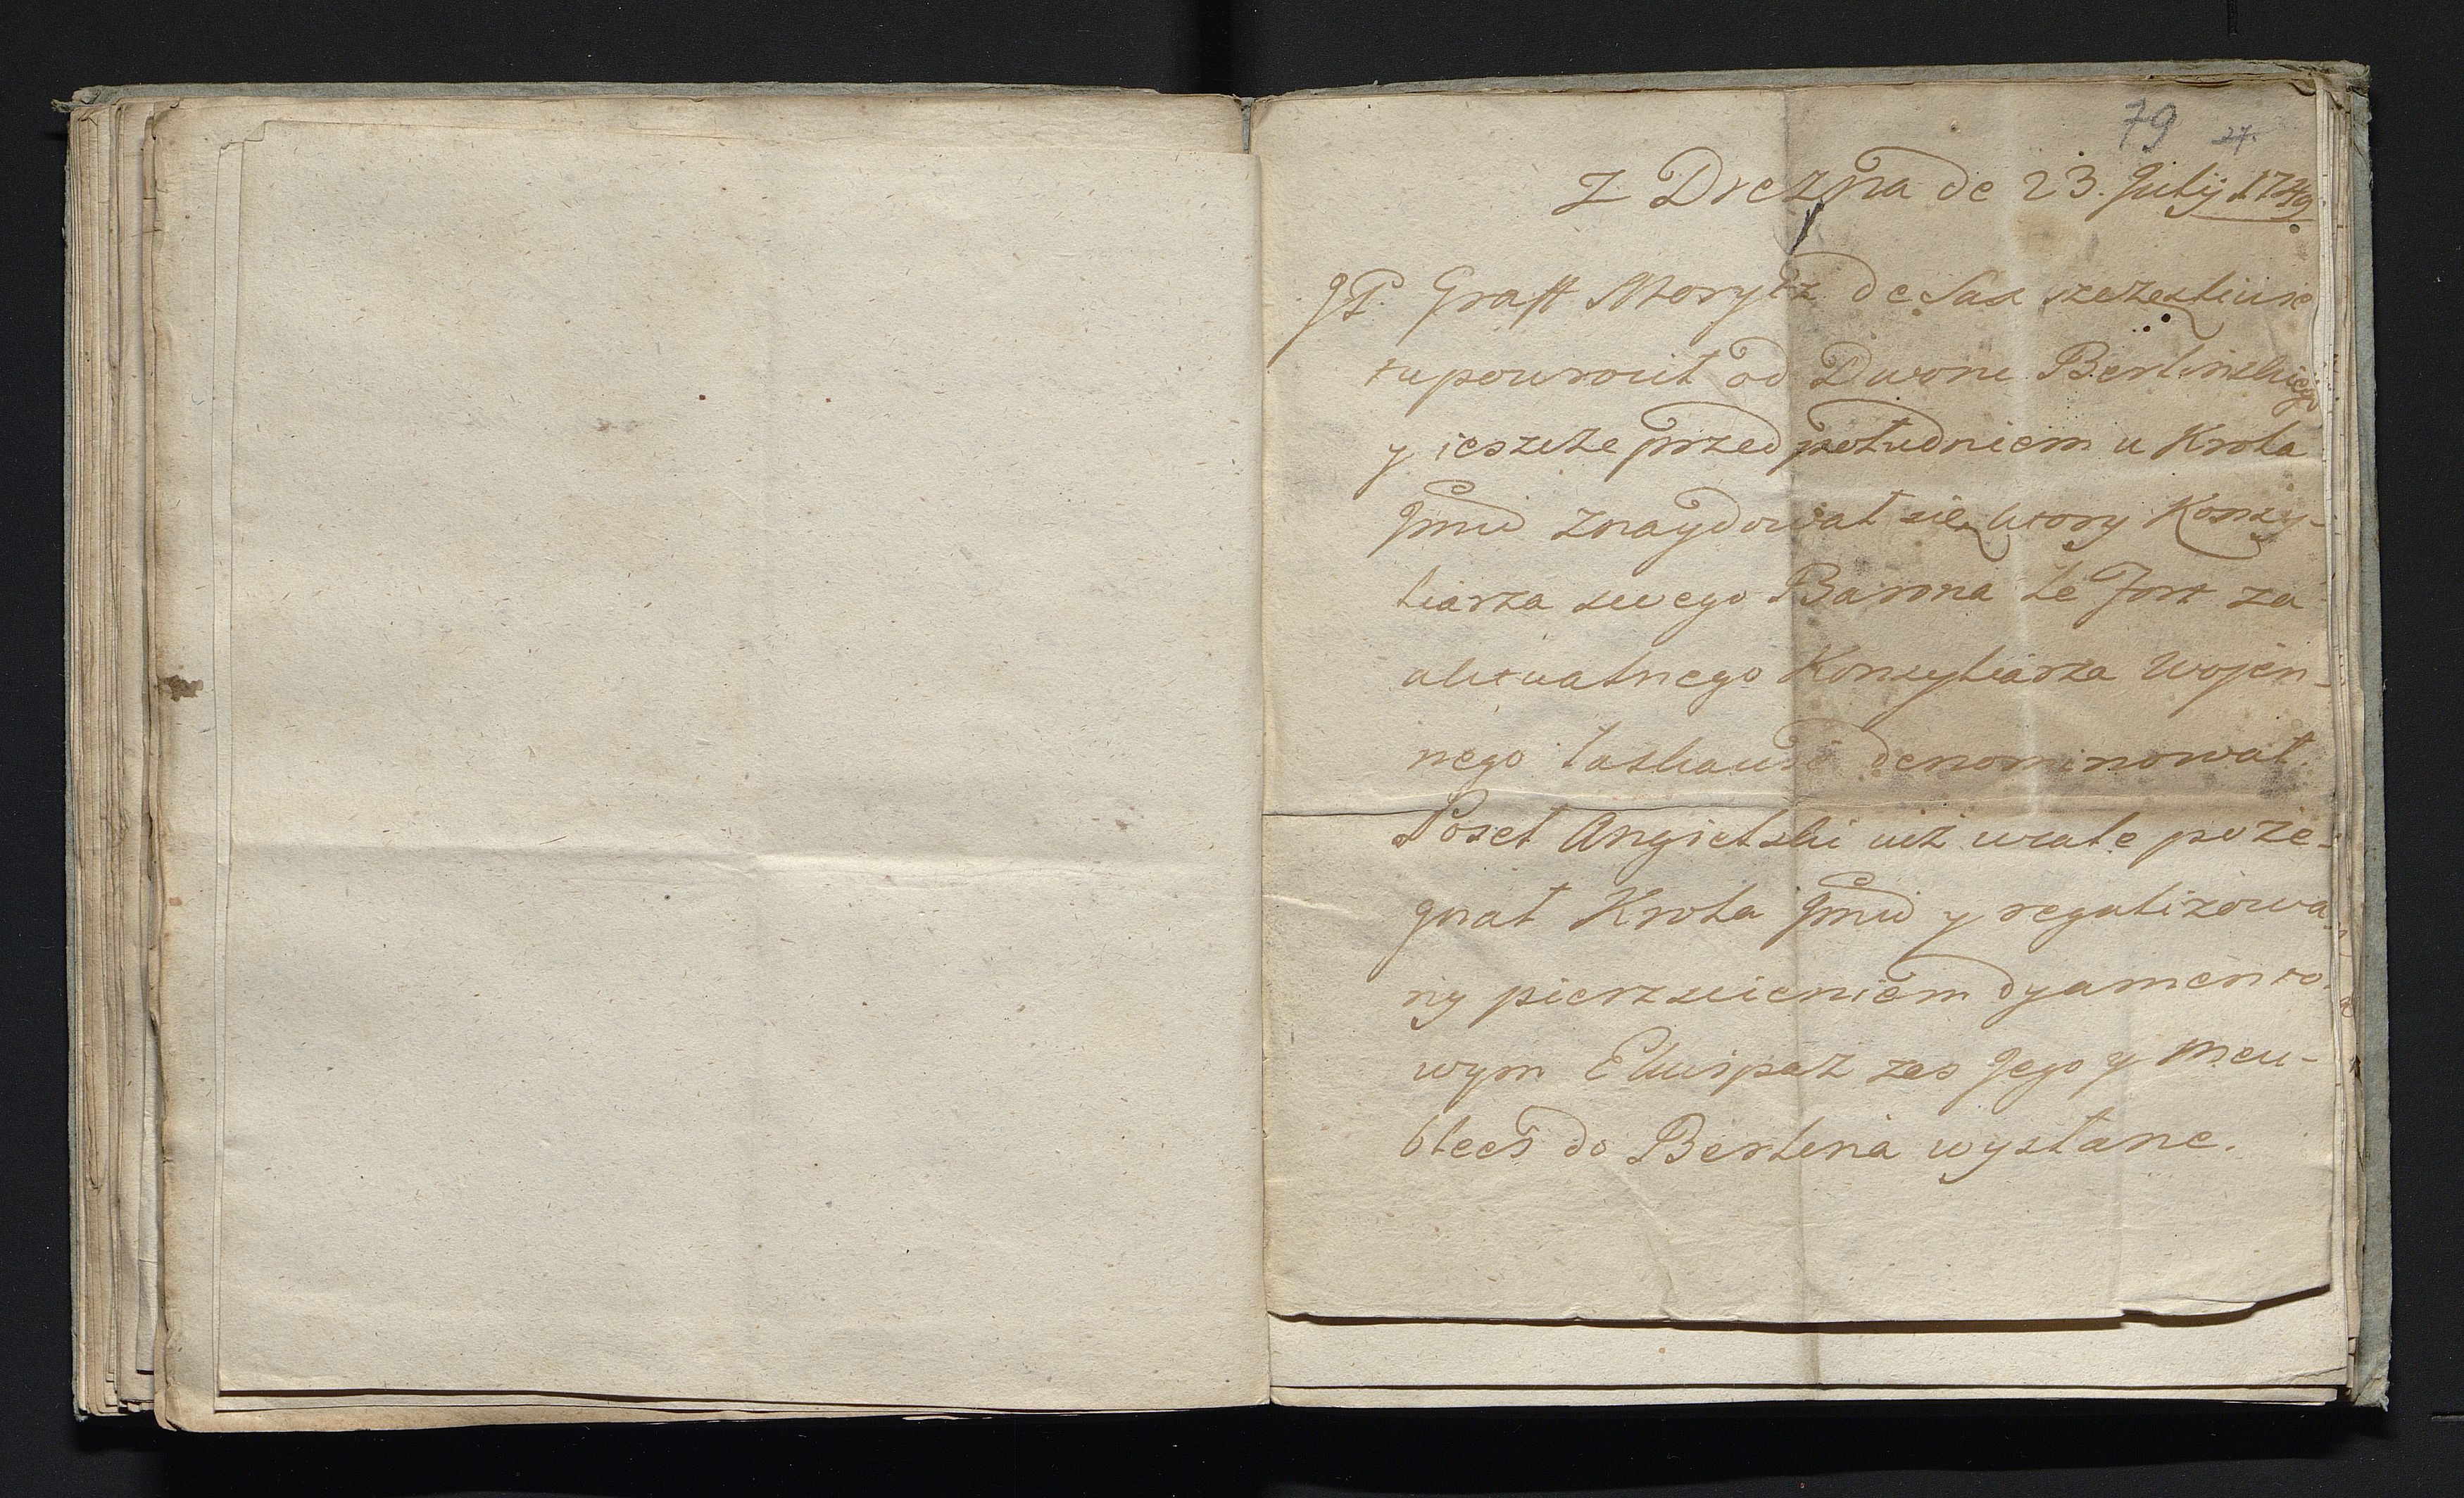 79 27.
Z Drezna de 23. Julij 1749
JP. Graff Morytz de Sax szczesliwie
tu powrocił od Dworu Berlinskiego
y ieszcze przed południem u Krola
Jmci znaydował się, ktory Konsy-
liarza swego Barona le Fort za
aktualnego Konsyliarza Wojen-
nego łaskawie denominował.
Poseł Angielski iuż wcale poże-
gnał Krola Jmci y regalizowa-
ny pierscieniem dyamento-
wym Ekwipaż zas Jego y Meu-
blees do Berlina wysłane.